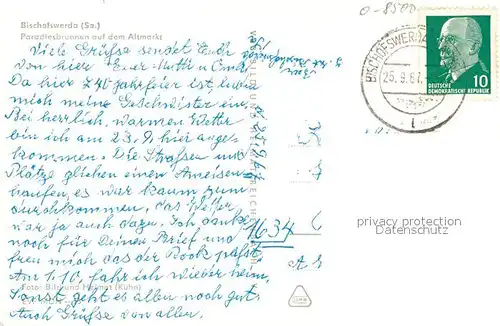 Bischofswerda (Sa.)
Paradiesbrunnen auf dem Altmarkt
Viele Grüsse sendet Euch
von hier Eure Mutti u. Omi
Da hier 740 Jahrfeier ist, lud
mich meine Geschwister ein.
Bei herrlich, warmen Wetter
bin ich am 23.9. hier ange-
kommen. Die Strassen und
Plätze glichen einen Ameisen-
haufen, es war kaum zum
durchkommen. Das Wetter
war ja auch dazu. Ich danke
noch für Deinen Brief und
freu mich das der Rock passt.
Am 1.10. fahr ich wieder heim.
Sonst geht es allen noch gut.
Auch Grüsse von allen.
Foto: Bild und Heimat (Kühn)
25.9.67
1634
BISCHOFSWERDA
25.9.67
DEUTSCHE
DEMOKRATISCHE REPUBLIK
10
privacy protection
Datenschutz